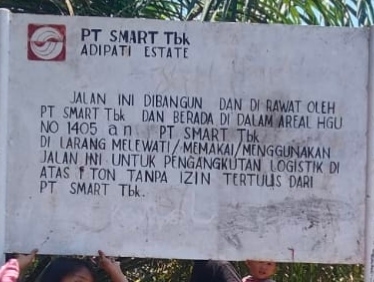 PT SMART Tbk
ADIPATI ESTATE
JALAN INI DIBANGUN DAN DI RAWAT OLEH
PT SMART Tbk DAN BERADA DI DALAM AREAL HGU
NO 1405 a n PT SMART Tbk
DI LARANG MELEWATI/MEMAKAI/MENGGUNAKAN
JALAN INI UNTUK PENGANGKUTAN LOGISTIK DI
ATAS 1 TON TANPA IZIN TERTULIS DARI
PT SMART Tbk.